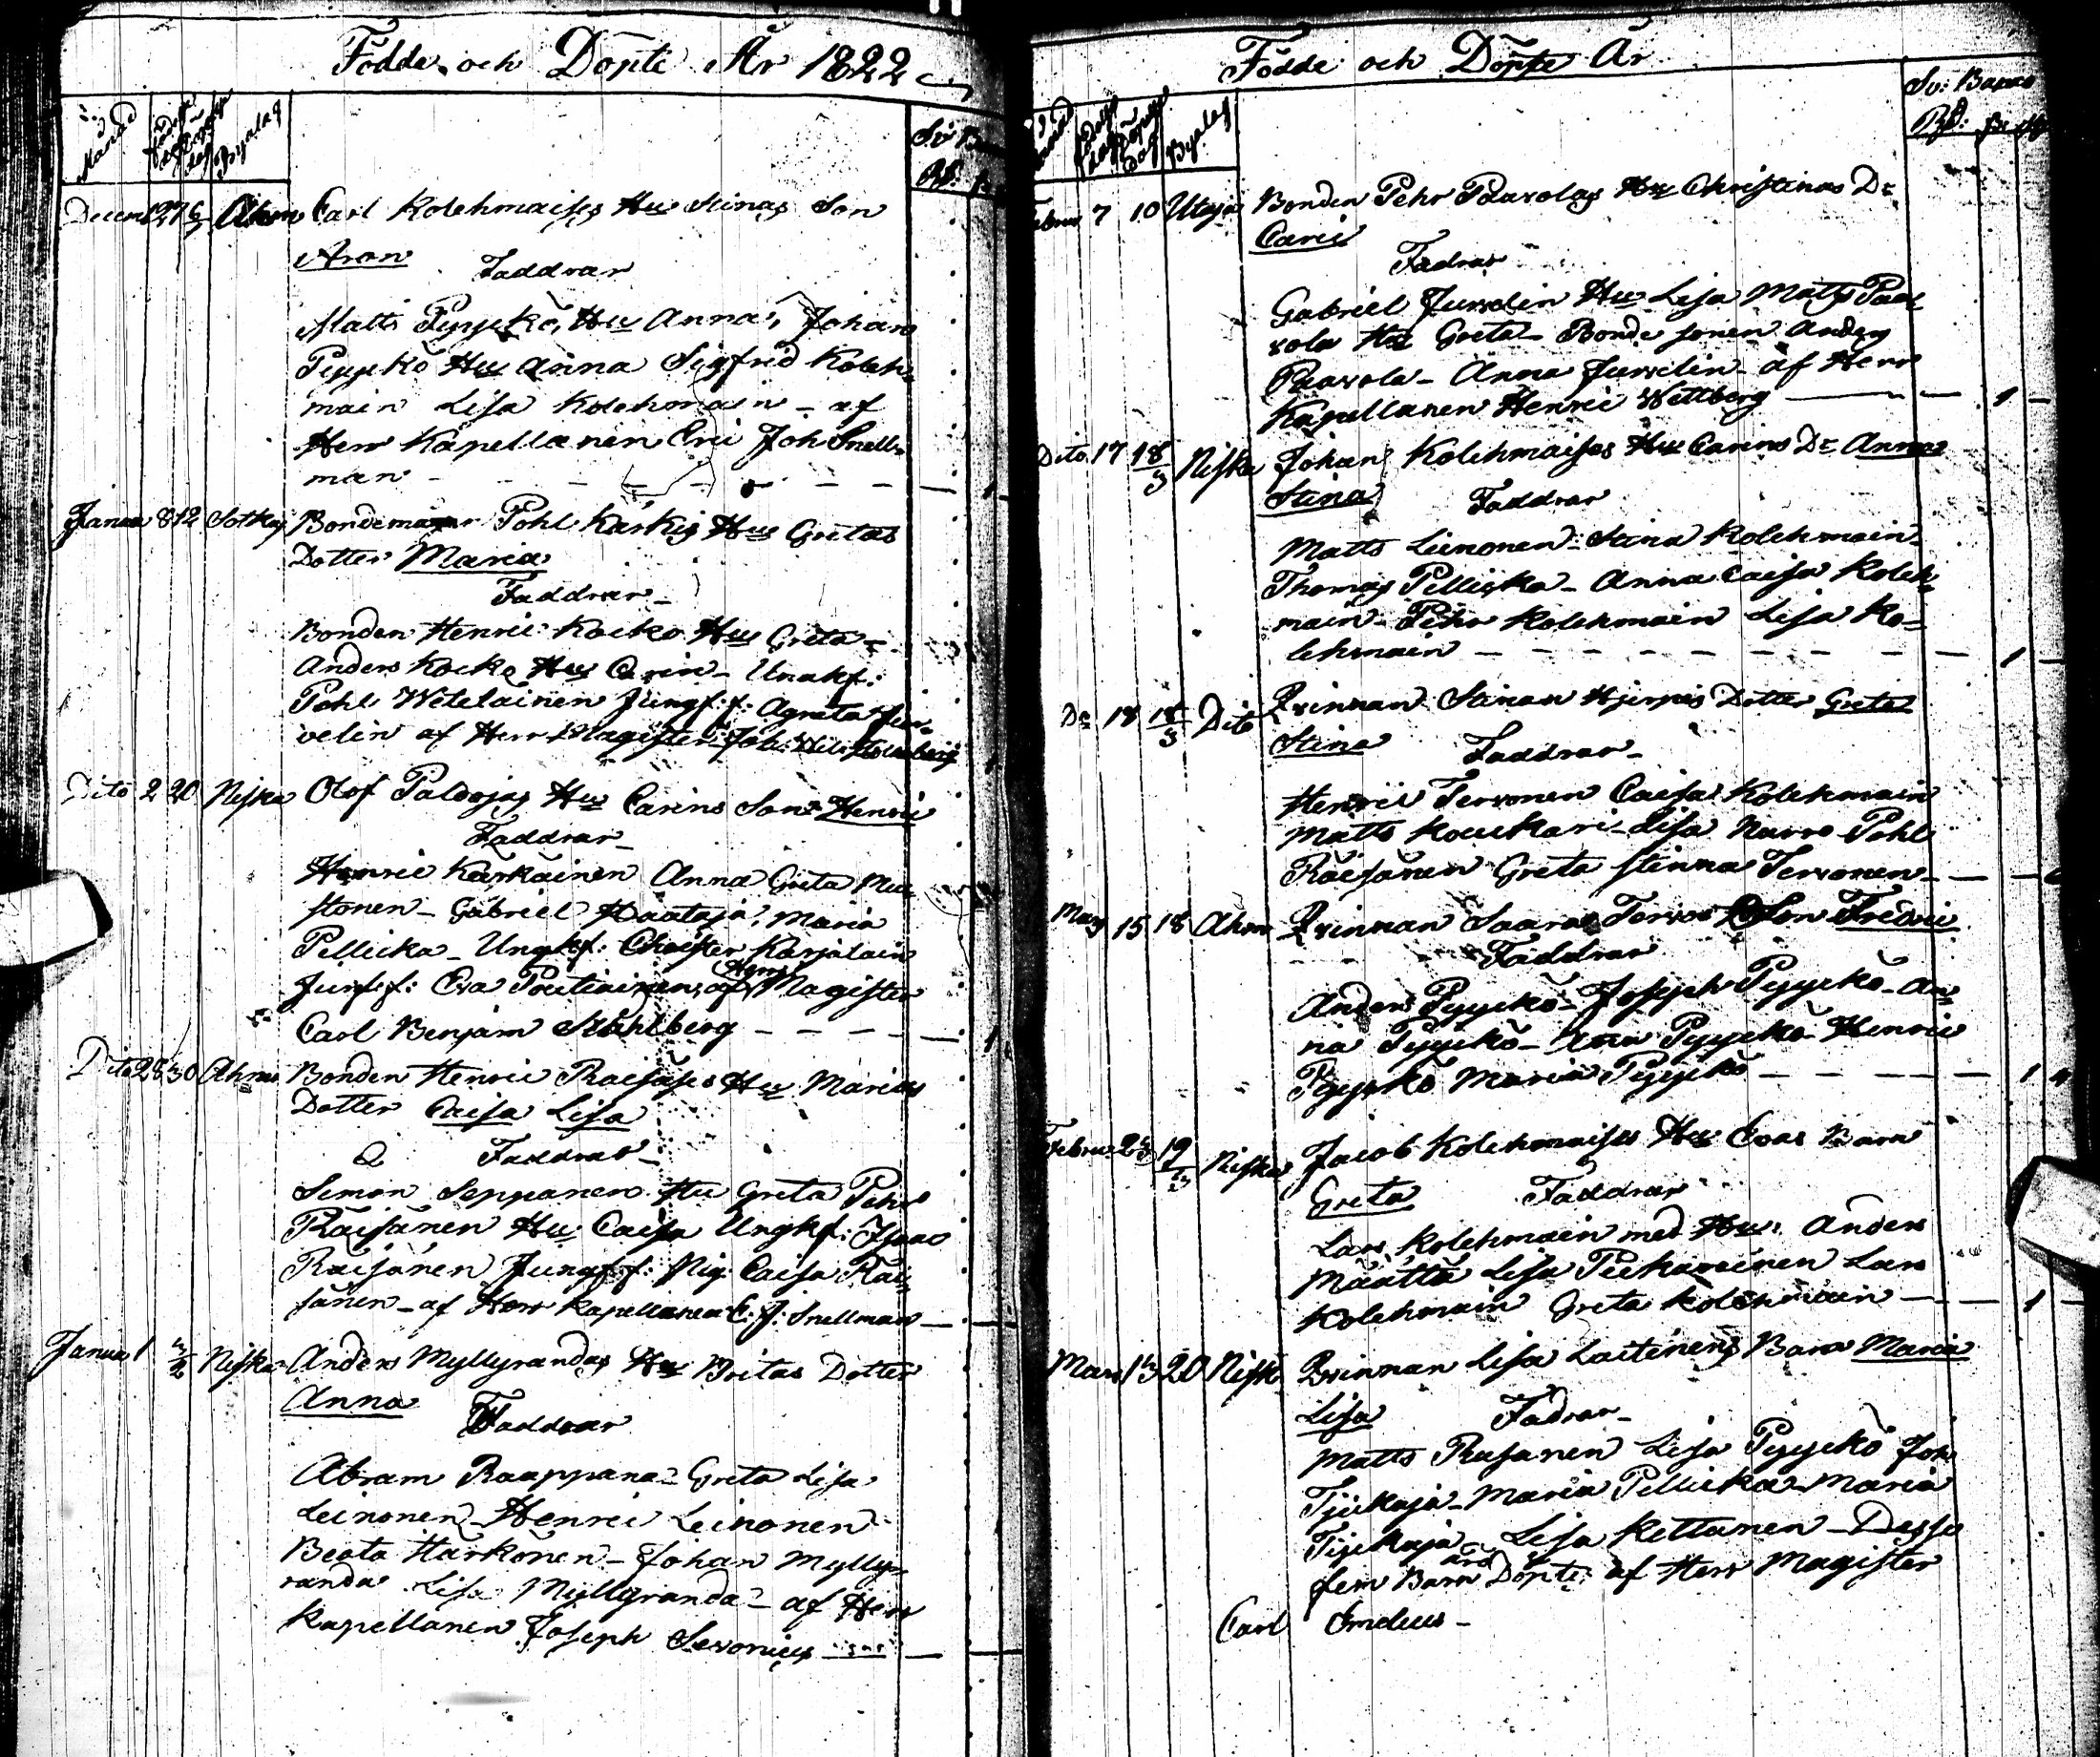 Födde och Döpte År 1822
Månad
Byalag
Sv: B
Rd:
Decem 27 6/1 Ahm Carl Kolehmaises Hu Stinas Son
Aron
Faddrar
Matts Pyyckö, Hu Anna, Johan
Pyyckö Hu Anna Sigfrid Koleh-
main Lisa Kolehmain - af
Herr Kapellanen Eric Joh Snell-
man
Janua 8 12 Sotkaj Bondemagr Pohl Kärkis Hus Gretas
Dotter Maria
Faddrar
Bonden Henric Kocko Hu Greta -
Anders Kocko Hu Carin - Unakf:
Pohl Wetelainen Jungf: f: Agneta Jur-
velin af Herr Magister Joh:
Dito 2 20 Niska Olof Paldojas Hu Carins Son Henric
Faddrar
Henric Karkainen Anna Greta Mu-
stonen - Gabriel Haataja, Maria
Pellicka - Ungkf: Christer Karjalain
Jungf: Eva Poutiainen, af Herr Magister
Carl Benjam Ståhlberg
Dito 28 30 Ahmas Bonden Henric Raisäses Hu Marias
Dotter Caisa Lisa
Faddrar
Simon Seppänen Hu Greta Pehr
Räisänen Hu Caisa Ungkf: Isaac
Räisänen Jungf: f: Pig: Caisa Räi-
sänen - af Herr Kapellanen E: J: Snellman
Janua 1 3/2 Niska Anders Myllyrandas Hu Britas Dotter
Anna
Faddrar
Abram Raappana - Greta Lisa
Leinonen - Henric Leinonen
Beata Härkönen - Johan Mylly-
randa Lisa Myllyranda - af Herr
Kapellanen Joseph Servonius
Födde och Döpte År
Månad
Byalag
Sv: Banco
Rd:
Februa 7 10 Utaja Bonden Pehr Paavolas Hu Christinas Dr
Caris
Fadrar
Gabriel Jurvelin Hu Lisa Matts Paa-
vola Hu Greta - Bonde sonen Anders
Paavola - Anna Jurvelin - af Herr
Kapellanen Henric Wettberg 1
Dito 17 18/3 Niska Johan Kolehmaises Hu Carins Dr Anna
Stina Faddrar
Matts Leinonen - Stina Kolehmain -
Thomas Pellicka - Anna Caisa Koleh-
main - Pehr Kolehmain Lisa Ko-
lehmain 1
Do 18 18/3 Dito Qvinnan Stinas Hjerpis Dotter Greta
Stina Faddrar
Henric Tervonen Caisa Kolehmain
Matts Kouckari - Lisa Karro - Pohl
Räisänen Greta Stinna Tervonen
Mars 15 18 Ahm Qvinnan Saaras Tervo Son Fredric
Faddrar
Anders Pyyckö - Joseph Pyyckö - An-
na Pyyckö - Pyyckö - Henric
Pyyckö Maria Pyyckö 1
Februa 23 19/3 Niska Jacob Kolehmaises Hu Evas Barn
Greta Faddrar
Lars Kolehmain med Hu: Anders
Määttä Lisa Pickarainen Lars
Kolehmain Greta Kolehmain 1
Mars 13 20 Nisk Qvinnan Lisa Laitinens Barn Maria
Lisa Fadrar
Matts Räsänen Lisa Pyyckö Joh
Tjickaja - Maria Pellicka - Maria
Tjickaja - Lisa Kettunen - Dessa
fem Barn äro Döpte af Herr Magister
Carl